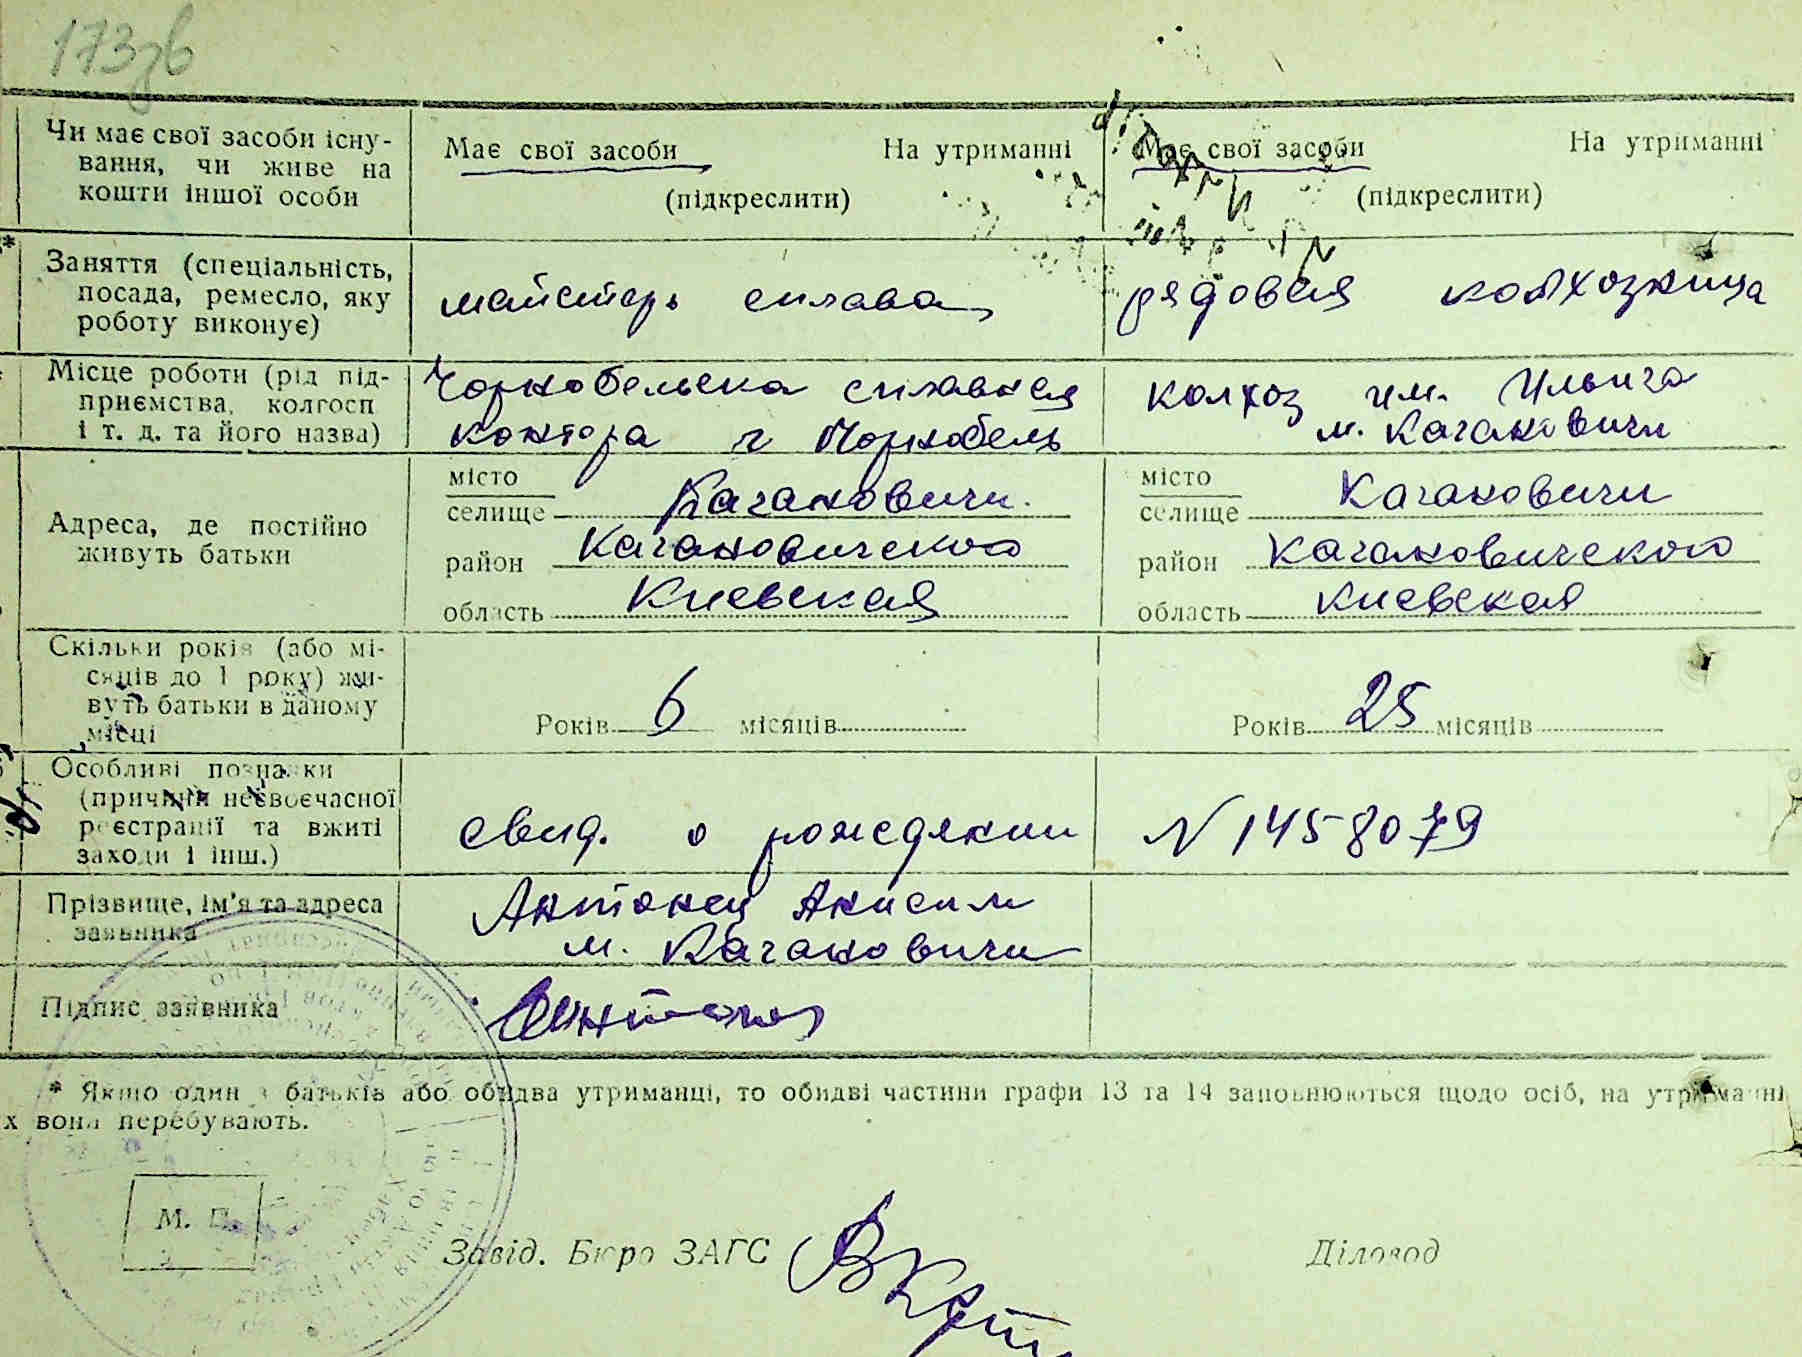 173зв
Чи має свої засоби існу- Має свої засоби На утриманні Має свої засоби На утриманні
вання, чи живе на
кошти іншої особи (підкреслити) (підкреслити)
Заняття (спеціальність,
посада, ремесло, яку майстер сплава рядовая колхозница
роботу виконує)
Місце роботи (рід під- Чорнобельска сплавная колхоз им. Ильича
приємства, колгосп
і т. д. та його назва) контора г Чорнобель м. Кагановичи
місто місто
селище Кагановичи. селище Кагановичи
Адреса, де постійно
живуть батьки район Кагановичского район Кагановичского
область Киевская область Киевская
Скільки років (або мі-
сяців до 1 року) жи-
вуть батьки в даному
місці Років 6 місяців Років 25 місяців
Особливі познаки
(причини несвоєчасної
реєстрації та вжиті свид. о рождении N 1458079
заходи і інш.)
Прізвище, ім'я та адреса Антонец Анисим
заявника м. Кагановичи
Підпис заявника Антонец
* Якщо один з батьків або обидва утриманці, то обидві частини графи 13 та 14 заповнюються щодо осіб, на утриманні
х вони перебувають.
М. П.
Завід. Бюро ЗАГС Діловод